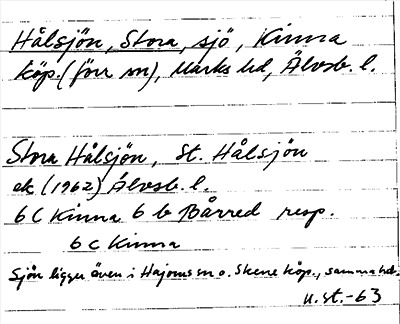 Hålsjön, Stora, sjö, Kinna
köp. (förr sn), Marks hd, Älvsb. l.
Stora Hålsjön, St. Hålsjön
ek (1962) Älvsb. l.
6 C Kinna 6 b Bårred resp.
6 C Kinna
Sjön ligger även i Hajoms sn o. Skene köp., samma hd.
U.St.-63